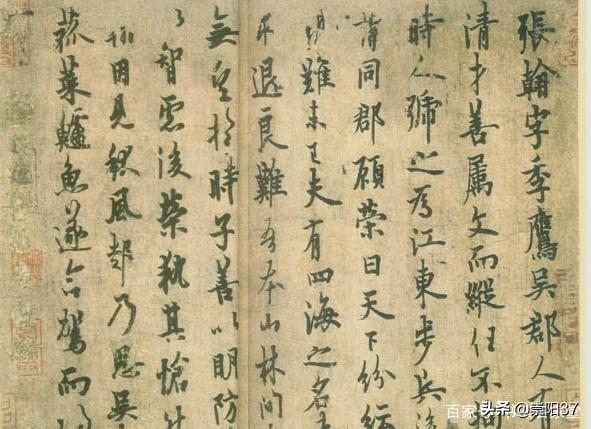 張翰字季鷹吳郡人有
清才善属文而縱任不拘
時人號之為江東步兵後
同郡顧榮曰天下紛紜
難未已夫有四海之名
求退良難吾本山林間
無望於時子善以明防
以智慮後榮執其愴然
因見秋風起乃思吳
菰菜鱸魚遂命駕而
百家
头条 @崇阳37